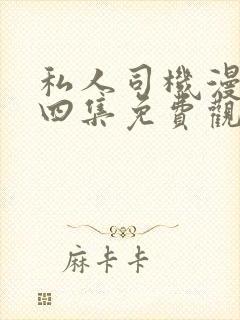 私人司機漫
四集免費觀
麻卡卡